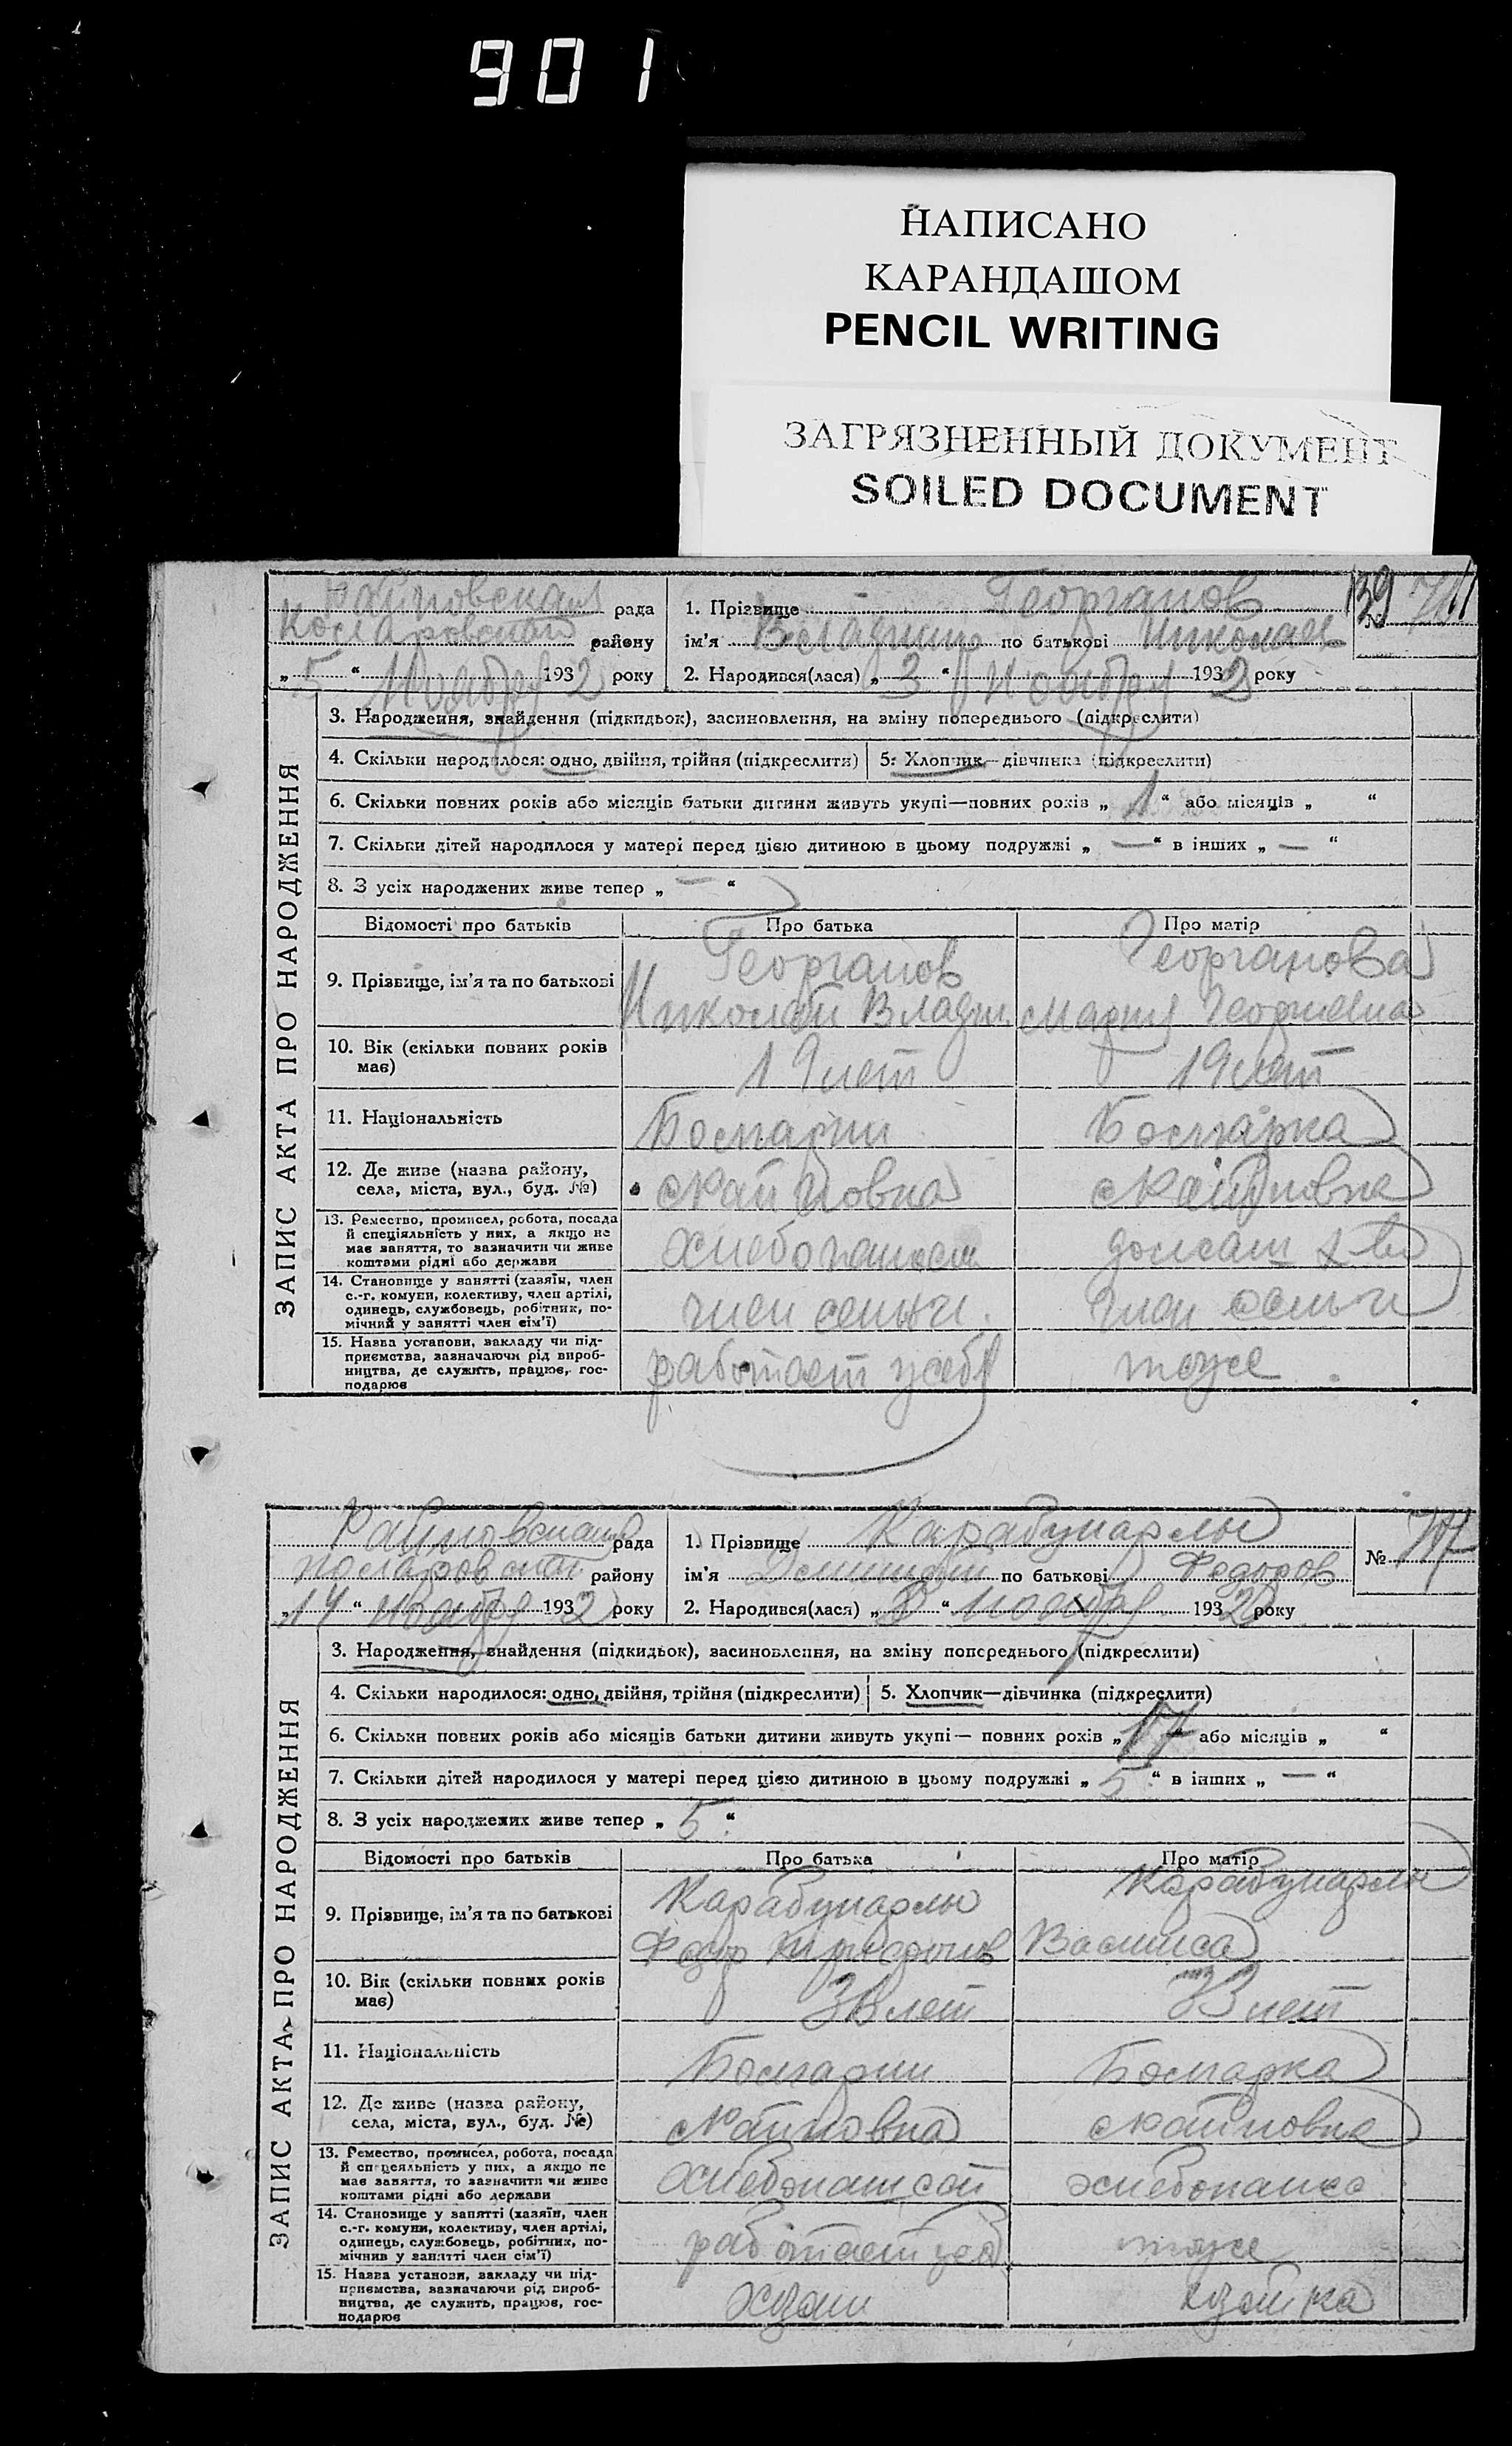 901
НАПИСАНО
КАРАНДАШОМ
PENCIL WRITING
ЗАГРЯЗНЕННЫЙ ДОКУМЕНТ
SOILED DOCUMENT
рада
району
„ 5 “ Ноября 1932 року
1. Прізвище Георганов
ім'я по батькові Николаев
2. Народився(лася) „ 3 “ Ноября 1932 року
39
ЗАПИС АКТА ПРО НАРОДЖЕННЯ
3. Народження, знайдення (підкидьок), засиновлення, на зміну попереднього (підкреслити)
4. Скільки народилося: одно, двійня, трійня (підкреслити)
5. Хлопчик—дівчинка (підкреслити)
6. Скільки повних років або місяців батьки дитини живуть укупі—повних років „ 1 “ або місяців „ “
7. Скільки дітей народилося у матері перед цією дитиною в цьому подружжі „ — “ в інших „ — “
8. З усіх народжених живе тепер „ — “
Відомості про батьків Про батька Про матір
9. Прізвище, ім'я та по батькові
Георганов Георганова
Николай Влади Мария Георгиевна
10. Вік (скільки повних років має)
19 лет 19 лет
11. Національність
Болгарин Болгарка
12. Де живе (назва району,
села, міста, вул., буд. №)
13. Ремество, промисел, робота, посада
й спеціяльність у них, а якщо не
має заняття, то зазначити чи живе
коштами рідні або держави
14. Становище у занятті (хазяїн, член
с.-г. комуни, колективу, член артілі,
одинець, службовець, робітник, по-
мічний у занятті член сім'ї)
член семьи член семьи
15. Назва установи, закладу чи під-
приємства, зазначаючи рід вироб-
ництва, де служить, працює, гос-
подарює
работает у себя тоже
рада
району
„ 14 “ ноября 1932 року
1. Прізвище Карабунарлы
ім'я по батькові Федоров
2. Народився(лася) „ 8 “ ноября 1932 року
№
ЗАПИС АКТА ПРО НАРОДЖЕННЯ
3. Народження, знайдення (підкидьок), засиновлення, на зміну попереднього (підкреслити)
4. Скільки народилося: одно, двійня, трійня (підкреслити)
5. Хлопчик—дівчинка (підкреслити)
6. Скільки повних років або місяців батьки дитини живуть укупі — повних років „ 17 “ або місяців „ “
7. Скільки дітей народилося у матері перед цією дитиною в цьому подружжі „ 5 “ в інших „ — “
8. З усіх народжених живе тепер „ 5 “
Відомості про батьків Про батька Про матір
9. Прізвище, ім'я та по батькові
Карабунарлы Карабунарлы
Федор Василиса
10. Вік (скільки повних років
має)
лет 33 лет
11. Національність
Болгарин Болгарка
12. Де живе (назва району,
села, міста, вул., буд. №)
13. Ремество, промисел, робота, посада
й спеціяльність у них, а якщо не
має заняття, то зазначити чи живе
коштами рідні або держави
14. Становище у занятті (хазяїн, член
с.-г. комуни, колективу, член артілі,
одинець, службовець, робітник, по-
мічний у занятті член сім'ї)
работает у себя тоже
15. Назва установи, закладу чи під-
приємства, зазначаючи рід вироб-
ництва, де служить, працює, гос-
подарює